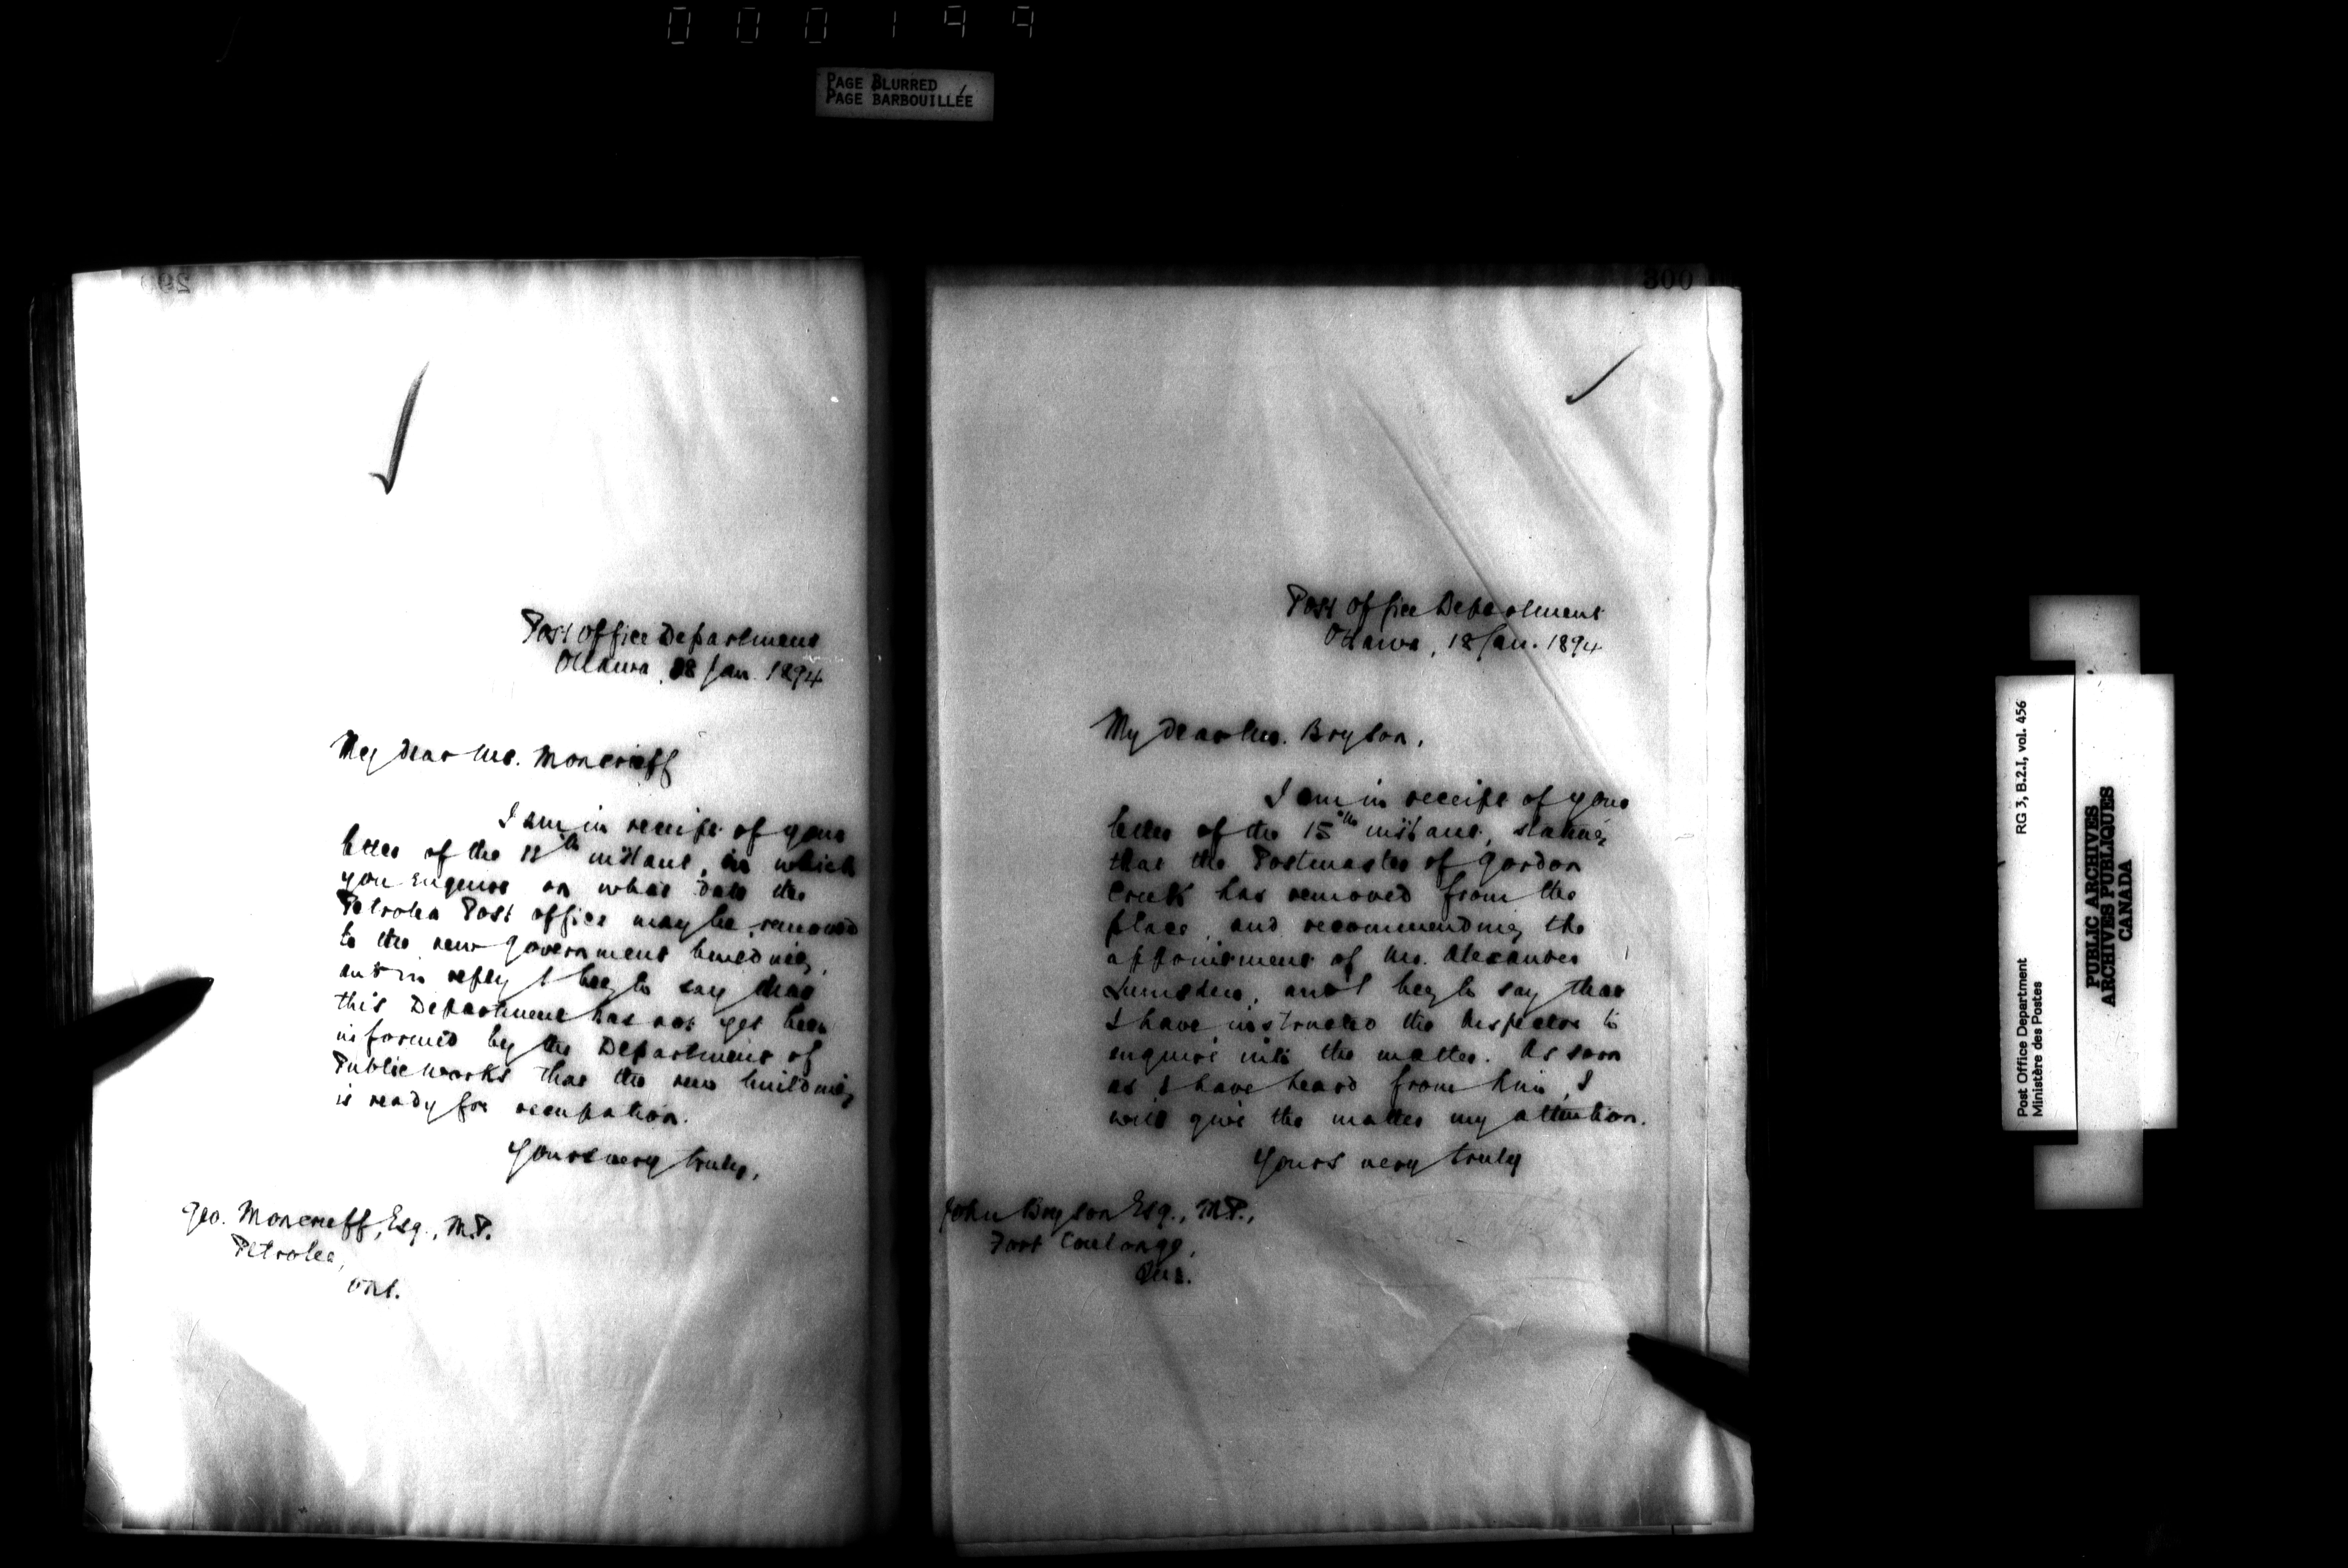 000199
PAGE BLURRED
PAGE BARBOUILLÉE
Post Office Department
Ottawa, 18 Jan. 1894
My dear Mr. Moncrieff
I am in receipt of your
letter of the th instant, in which
you enquire on what date the
Petrolea Post Office may be removed
to the new Government building,
and in reply I beg to say that
this Department has not yet been
informed by the Department of
Public Works that the new building
is ready for occupation.
Yours very truly,
Geo. Moncrieff, Esq., M.P.
Petrolea,
Ont.
300
Post Office Department
Ottawa, 18 Jan. 1894
My dear Mr. Bryson,
I am in receipt of your
letter of the 15th instant, stating
that the Postmaster of Gordon
Creek has removed from the
place, and recommending the
appointment of Mr. Alexander
Lumsden, and I beg to say that
I have instructed the Inspector to
enquire into the matter. As soon
as I have heard from him, I
will give the matter my attention.
Yours very truly
John Bryson Esq., M.P.,
Fort Coulonge,
Que.
Post Office Department
Ministère des Postes
RG 3, B.2.I, vol. 456
PUBLIC ARCHIVES
ARCHIVES PUBLIQUES
CANADA